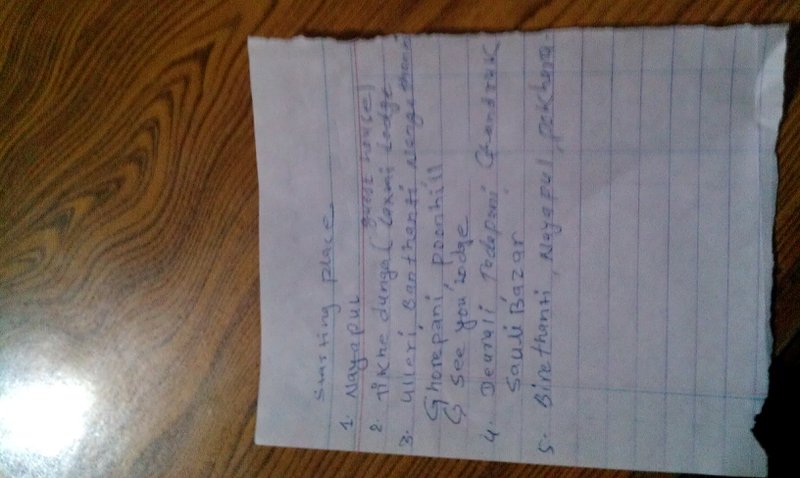 starting place
1. Nayapul
guest house)
2. Tikhe dunga ( Laxmi Lodge
3. Ulleri, Banthanti Nange thanti
Ghorepani, poonhill
G See you Lodge
4. Deurali Tadapani Ghandruk
Sauli Bazar
5. Birethanti, Nayapul, pokhara